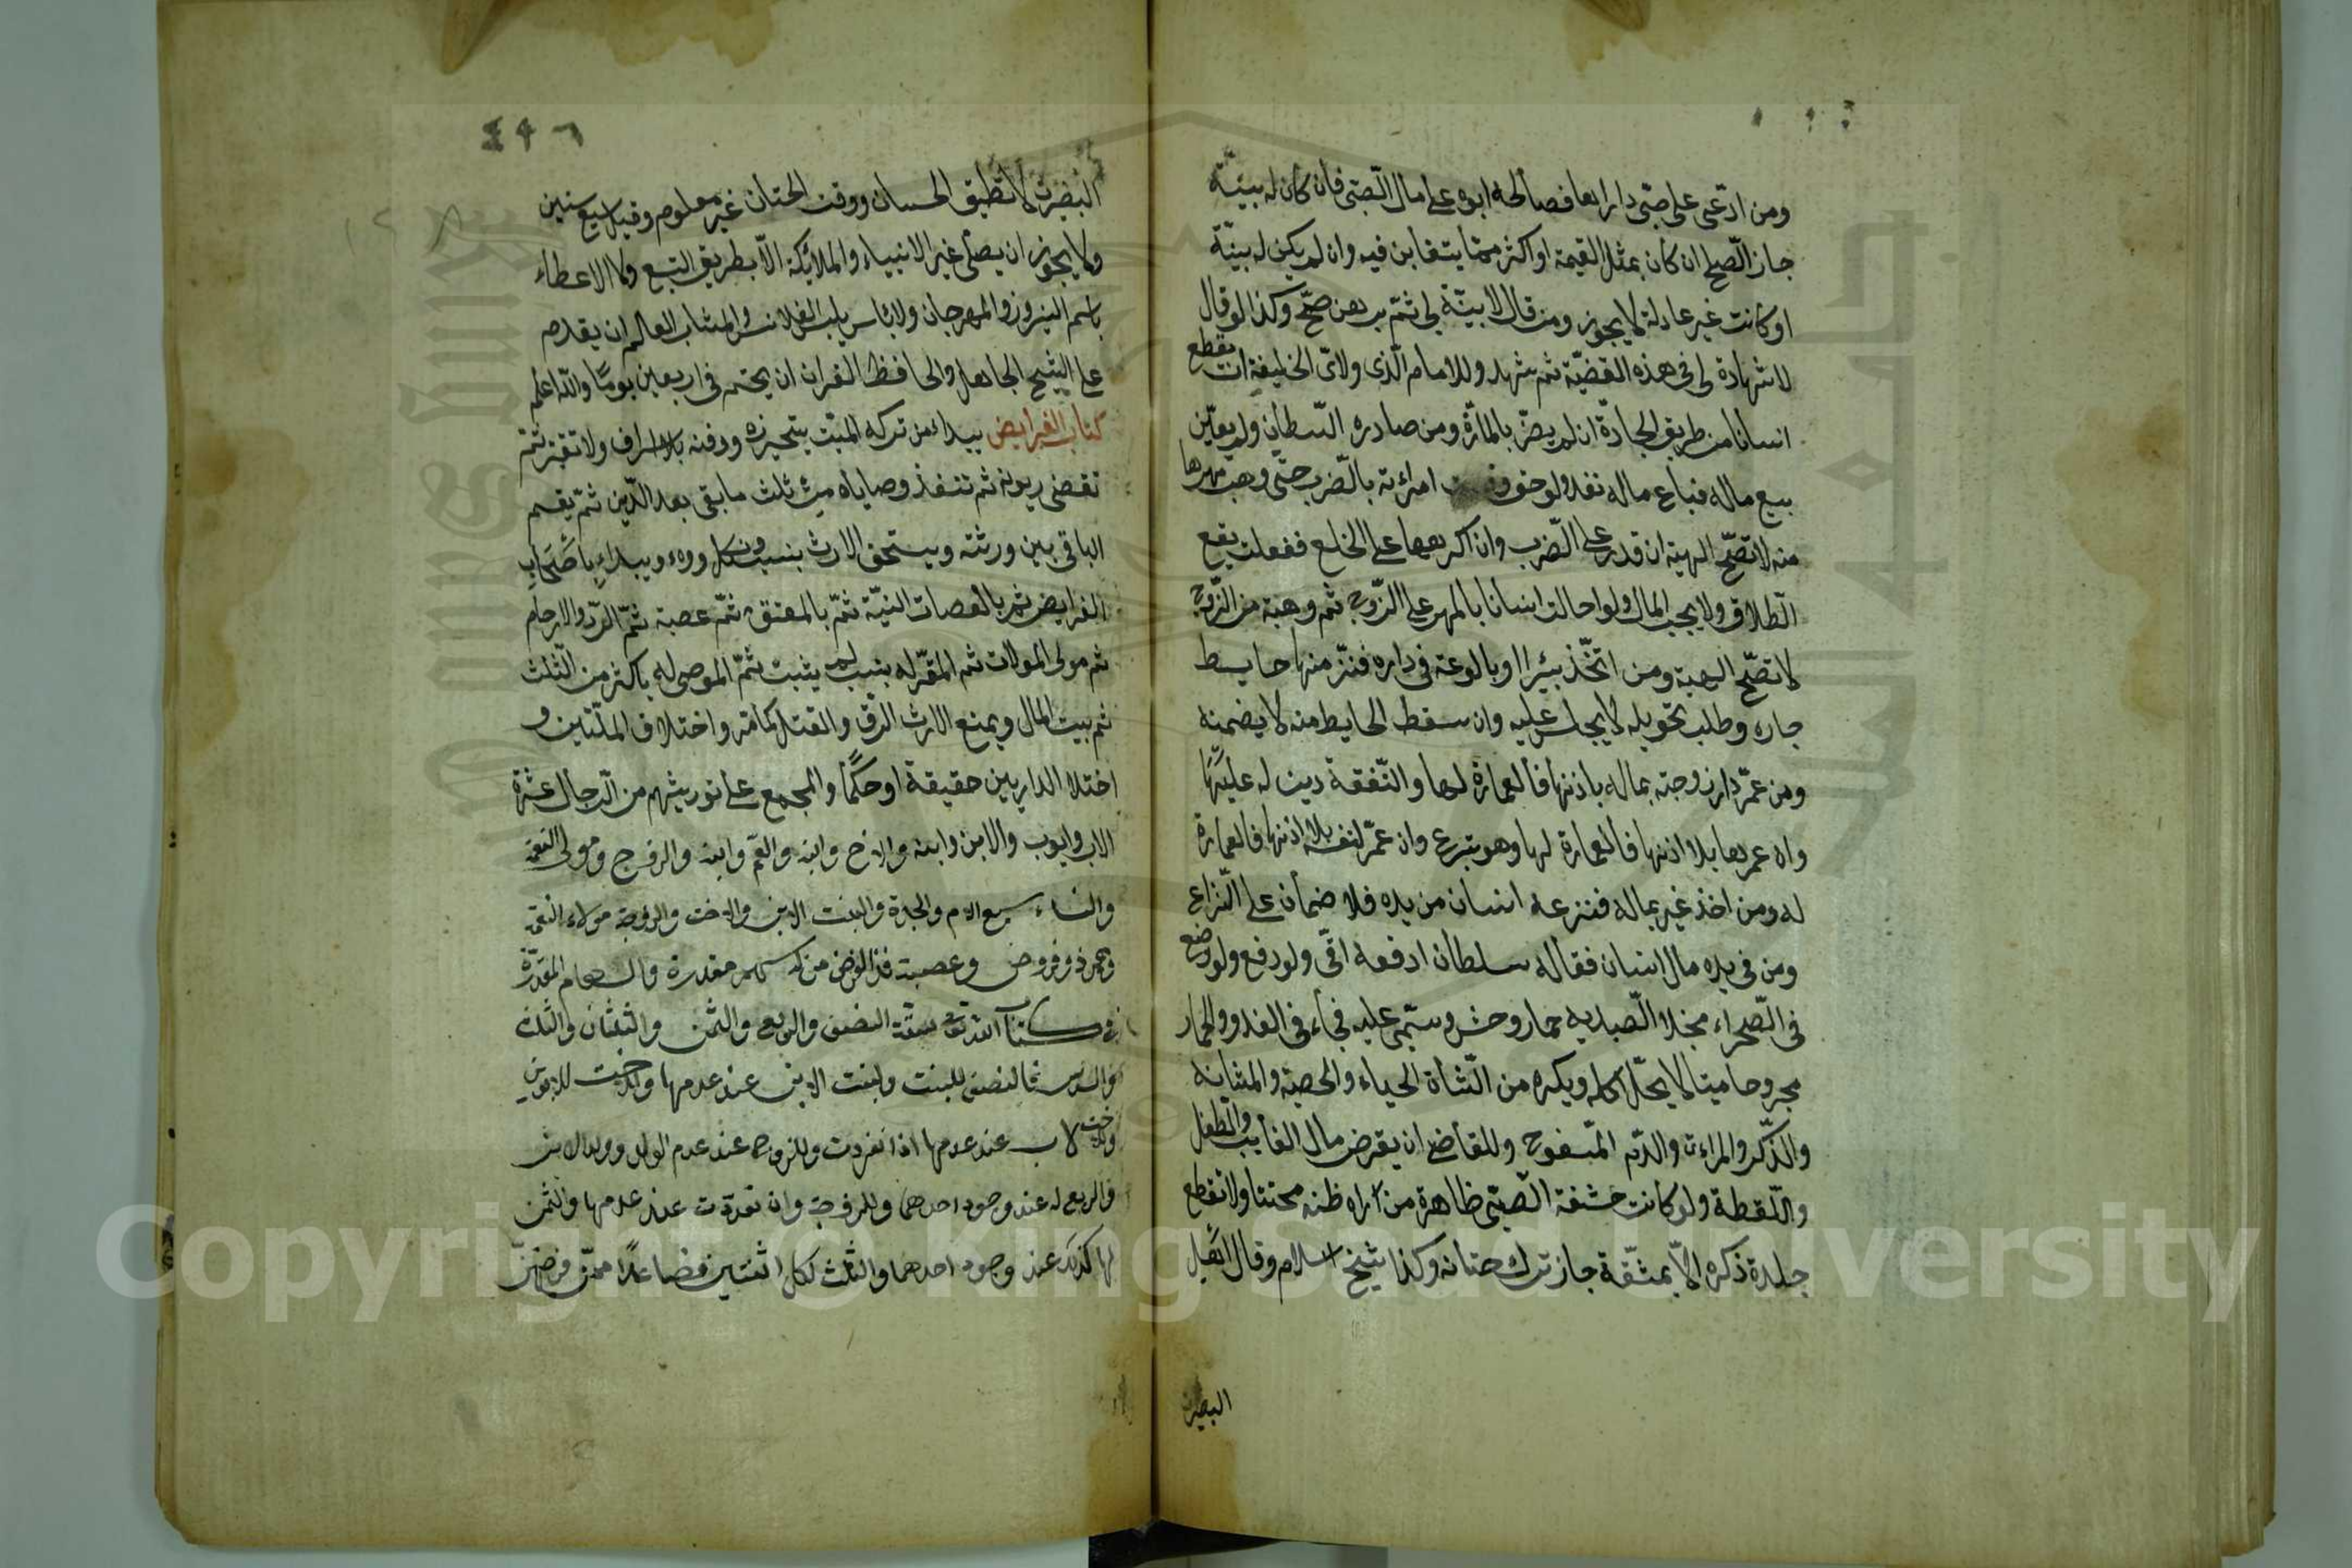 ومن ادّعى على صبّى دارا بها فصالحه ابوه على مال الصّبّى فان كان له بيّنة
جاز الصّلح ان كان بمثل القيمة او اكثر ممّا يتغابن فيه وان لم يكن له بيّنة
او كانت غير عادلة لا يجوز ومن قال لا بيّنة لى ثمّ برهن صحّ وكذا لو قال
لا شهادة لى فى هذه القضيّة ثم شهد وللامام الّذى ولاّه الخليفة ان يقطع
انسانا من طريق الجادة ان لم يضرّ بالمارّة ومن صادره السّلطان ولم يعيّن
بيع ماله فباع ماله نفذ ولو خوف امرءته بالضّرب حتّى وهبت مهرها
منه لا تصّح الهبة ان قدر على الضّرب وان اكرهها على الخلع ففعلت يقع
الطّلاق ولا يجب المال ولو احالت انسانا بالمهر على الزّوج ثم وهبة من الزّوج
لا تصّح الهبة ومن اتّخذ بيرا او بالوعة فى داره فنزّ منها حايط
جاره وطلب تحويله لا يجبر عليه وان سقط الحايط منه لا يضمنه
ومن عمّر دار زوجته بماله باذنها فالعمارة لها والنّفقة دين له عليها
وان عمرها بلا اذنها فالعمارة لها وهو متبرع وان عمّر لنفسه بلا اذنها فالعمارة
له ومن اخذ غيريما له فنزعه انسان من يده فلا ضمان على النّزاع
ومن فى يده مال انسان فقال له سلطان ادفعه الىّ ولو دفع ولو وضع
فى الصّحراء منجلا لصيد به حمار وحش وسمّى عليه فجاء فى الغد والحمار
مجروحا ميتا لا يحلّ اكله ويكره من الشّاة الحياء والخصية والمثانة
والذّكر والمراءة والدّم المسفوح وللقاضى ان يقرض مال الغايب والطفل
واللّقطة ولو كانت حشفة الصّبّى ظاهرة من راه ظنه مختنا ولا تقطع
جلدة ذكره الاّ بمشّقة جاز ترك ختانه وكذا شيخ اسلم وقال اهل
البصر
٤٩٦
البصر لا تطيق الختان ووقت الختان غير معلوم وقيل سبع سنين
ولا يجوز ان يصلّى غير الانبياء والملائكة الاّ بطريق التبع ولا الاعطاء
باسم النيروز والمهرجان ولا باس بلبس القلانس والشاب العالم ان يقدم
على الشيخ الجاهل ولحافظ القران ان يختم فى اربعين يوما واللّه اعلم
كتاب الفرايض يبداء من تركه الميّت بتجهيزه ودفنه بلا اسراف ولا تقتير ثمّ
تقضى ديونه ثم تنفذ وصاياه من ثلث ما بقى بعد الدّين ثمّ يقسم
الباقى بين ورثته ويستحق الارث بنسب ونكاح وولاء ويبداء باصحاب
الفرايض ثم بالعصبات النسبيّة ثمّ بالمعتق ثمّ عصبته ثمّ الرّد والارحام
ثم مولى الموالات ثم المقرّ له بنسب لم يثبت ثمّ الموصى له باكثر من الثّلث
ثم بيت المال ويمنع الارث الرّق والقتل كمامّر واختلاف الملّتين و
اختلاف الدارين حقيقة او حكمًا والمجمع على توريثهم من الرّجال عشرة
الاب وابوه والابن وابنه والاخ وابنه والعم وابنه والزوج ومولى النعمة
والنساء سبع الام والجدة والبنت وبنت الابن والاخت والزوجة ومولاة النعمة
وهم ذو فروض وعصبة فذو الفرض من له سهم مقدرة والسهام المقدّرة
فى كتاب اللّه تعالى ستّة النصف والربع والثمن والثلثان والثلث
والسدس فالنصف للبنت ولبنت الابن عند عدمها والاخت للابوين
والاخت لاب عند عدمها اذا انفردت وللزوج عند عدم الولد وولد الابن
والربع له عند وجود احدهما وللزوجة وان تعدّدت عند عدمها والثمن
لها كذلك عند وجود احدهما والثلثان لكل اثنتين فصاعدًا ممّن فرضهنّ
Copyright © King Saud University